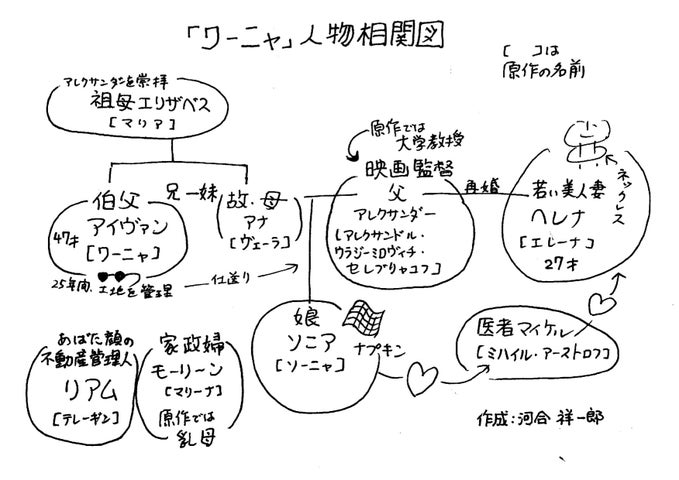 「ワーニャ」人物相関図
[ ]は
原作の名前
アレクサンダーを崇拝
祖母エリザベス
[マリア]
伯父
アイヴァン
47才
[ワーニャ]
25年間、土地を管理
兄ー妹
故・母
アナ
[ヴェーラ]
仕送り
原作では
大学教授
映画監督
父
アレクサンダー
[アレクサンドル・
ウラジーミロヴィチ・
セレブリャコフ]
再婚
若い美人妻
ヘレナ
[エレーナ]
27才
ネックレス
あばた顔の
不動産管理人
リアム
[テレーギン]
家政婦
モーリーン
[マリーナ]
原作では
乳母
娘
ソニア
[ソーニャ]
ナプキン
医者マイケル
[ミハイル・アーストロフ]
作成:河合祥一郎